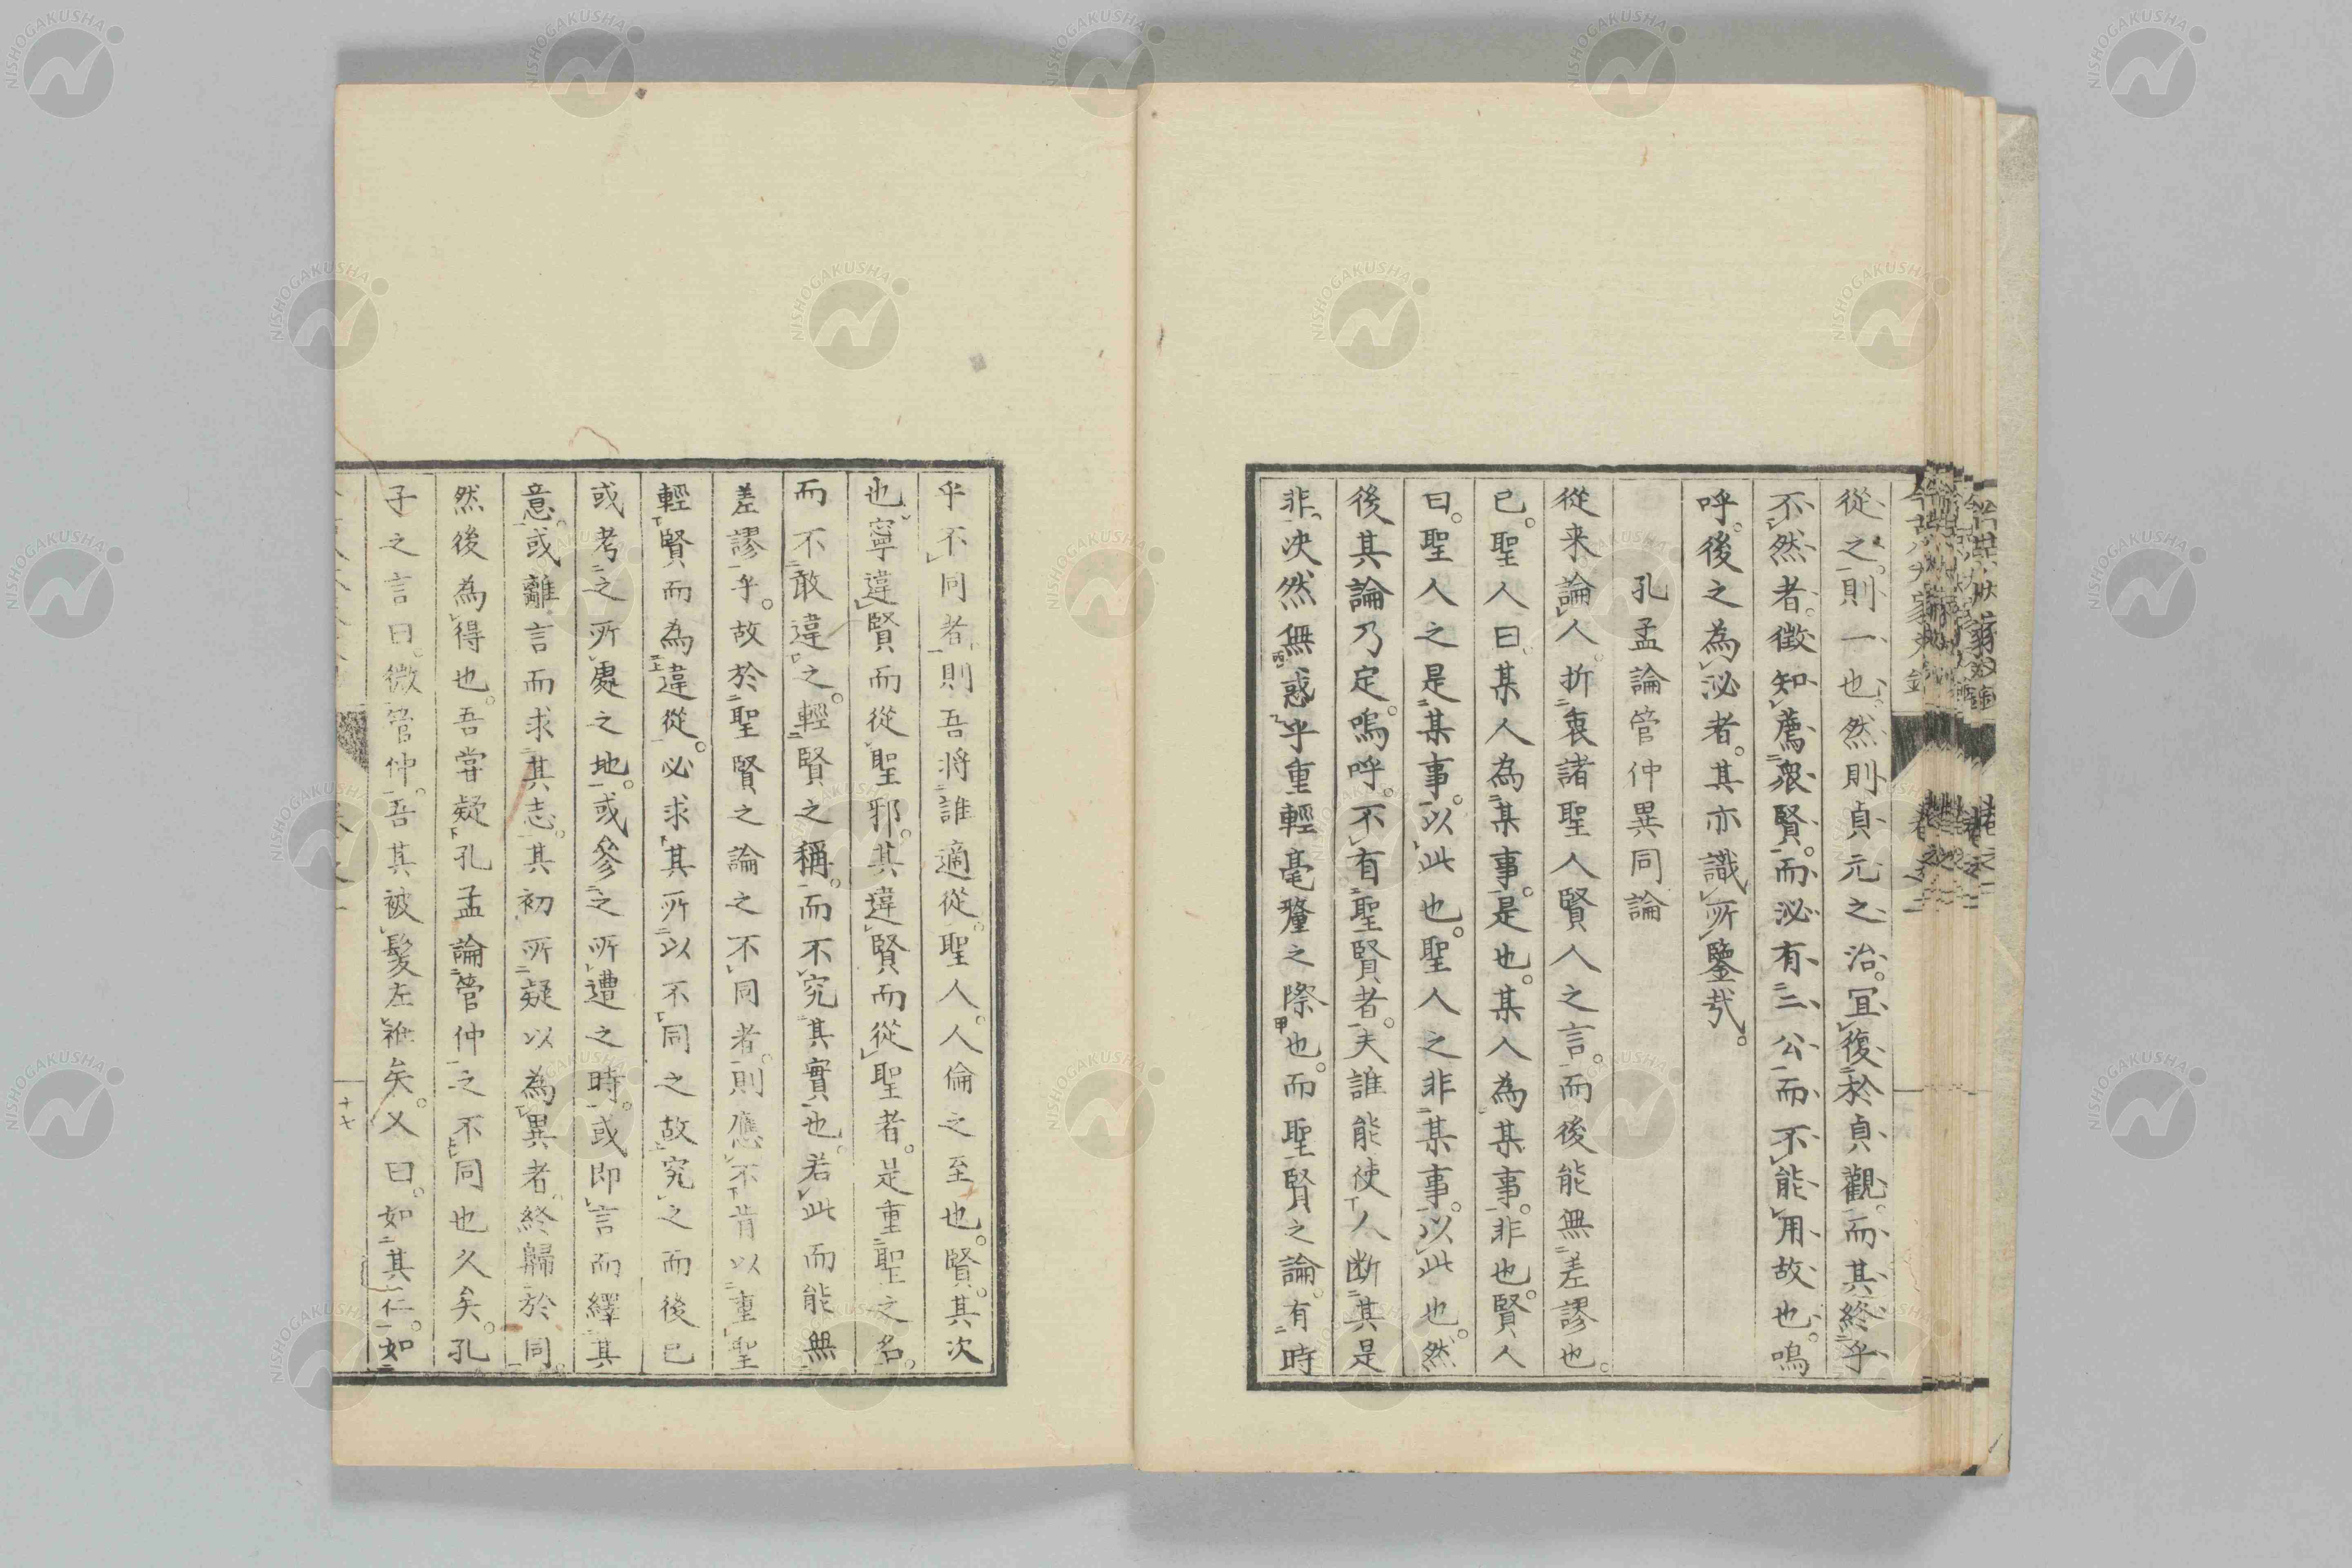 從之。則一也。然則貞元之治。冝復於貞觀。而其終乎
不然者。徴知薦衆賢。而泌有三公而不能用故也。嗚
呼。後之為泌者。其亦識所鑒哉。
孔孟論管仲異同論
從来論人。折衷諸聖人賢人之言。而後能無差謬也。
已。聖人曰。某人為某事。是也。某人為某事。非也。賢人
曰。聖人之是某事。以此也。聖人之非某事。以此也。然
後其論乃定。嗚呼。不有聖賢者。夫誰能使人断其是
非。决然無惑乎重輕毫釐之際也。而聖賢之論。有時
乎不同者。則吾将誰適從。聖人。人倫之至也。賢。其次
也。寧違賢而從聖邪。其違賢而從聖者。是重聖之名。
而不敢違之。輕賢之稱。而不究其實也。若此而能無
差謬乎。故於聖賢之論之不同者。則應不肯以重聖
輕賢而為違從。必求其所以不同之故究之而後已
或考之所處之地。或參之所遭之時。或即言而繹其
意。或離言而求其志。其初所疑以為異者。終歸於同
然後為得也。吾甞疑孔孟論管仲之不同也久矣。孔
子之言曰。微管仲。吾其被髮左衽矣。又曰。如其仁。如
十七
NISHOGAKUSHA